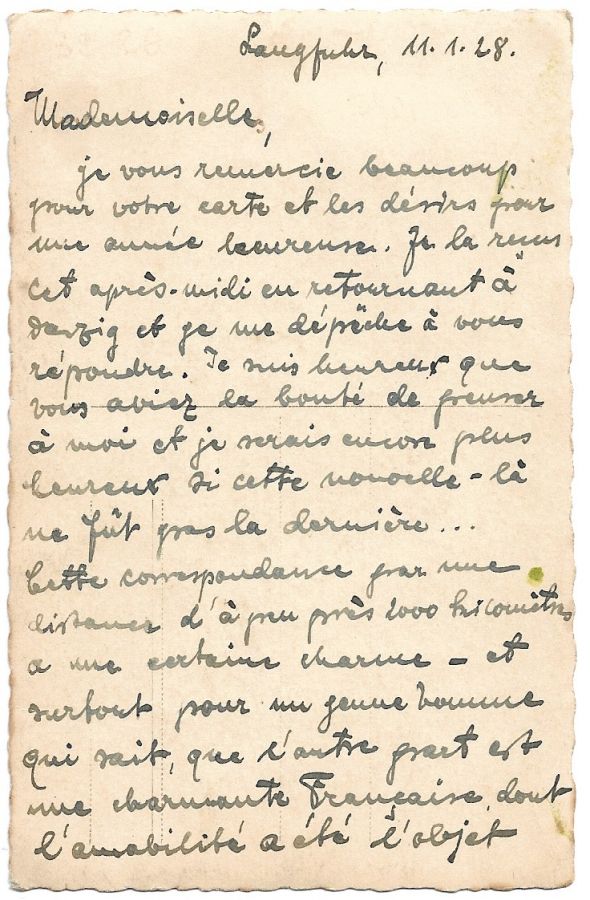 Langfuhr, 11.1.28.
Mademoiselle,
je vous remercie beaucoup
pour votre carte et les désirs pour
une année heureuse. Je la reçus
cet après-midi en retournant à
Danzig et je me dépêche à vous
répondre. Je suis heureux que
vous aviez la bonté de penser
à moi et je serais encore plus
heureux si cette nouvelle-là
ne fût pas la dernière...
Cette correspondance par une
distance d'à peu près 2000 kilomètres
a une certaine charme - et
surtout pour un jeune homme
qui sait, que l'autre part est
une charmante Française, dont
l'amabilité a été l'objet